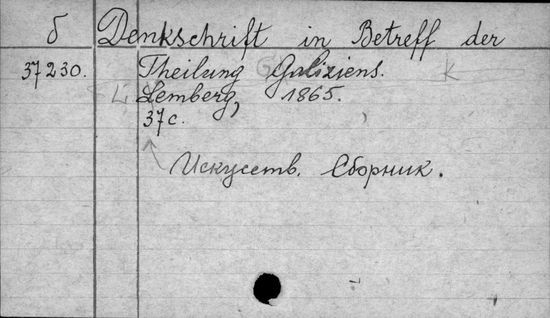 б Denkschrift in Betreff der
37230. Theilung Galiziens. K
L Lemberg, 1865.
37 с.
Искусств. Сборник.